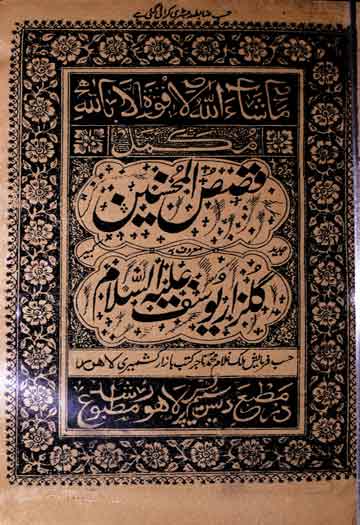 حسب ضابطہ رجسٹری کرائی گئی ہے
ماشاء اللہ لا قوة الا باللہ
مکمل
قصص المحسنین
معروف بہ
گلزار یوسف علیہ السلام
حسب فرمایش ملک غلام محمد تاجر کتب بازار کشمیری لاہور
در مطبع لاہور مطبوع